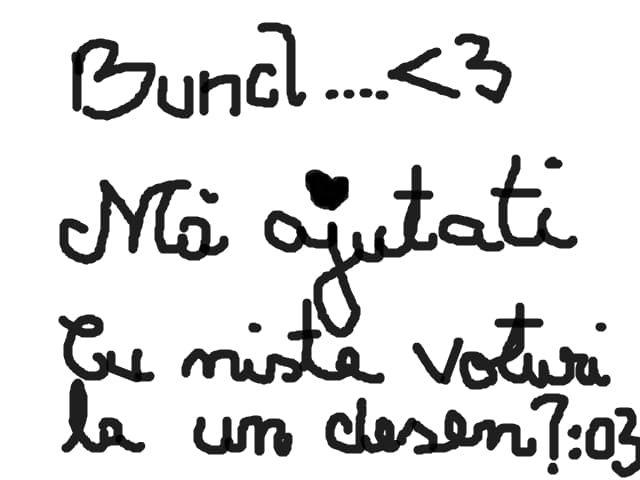 Bună ....<3
Mă ajutati
Cu niste voturi
la un desen?:03